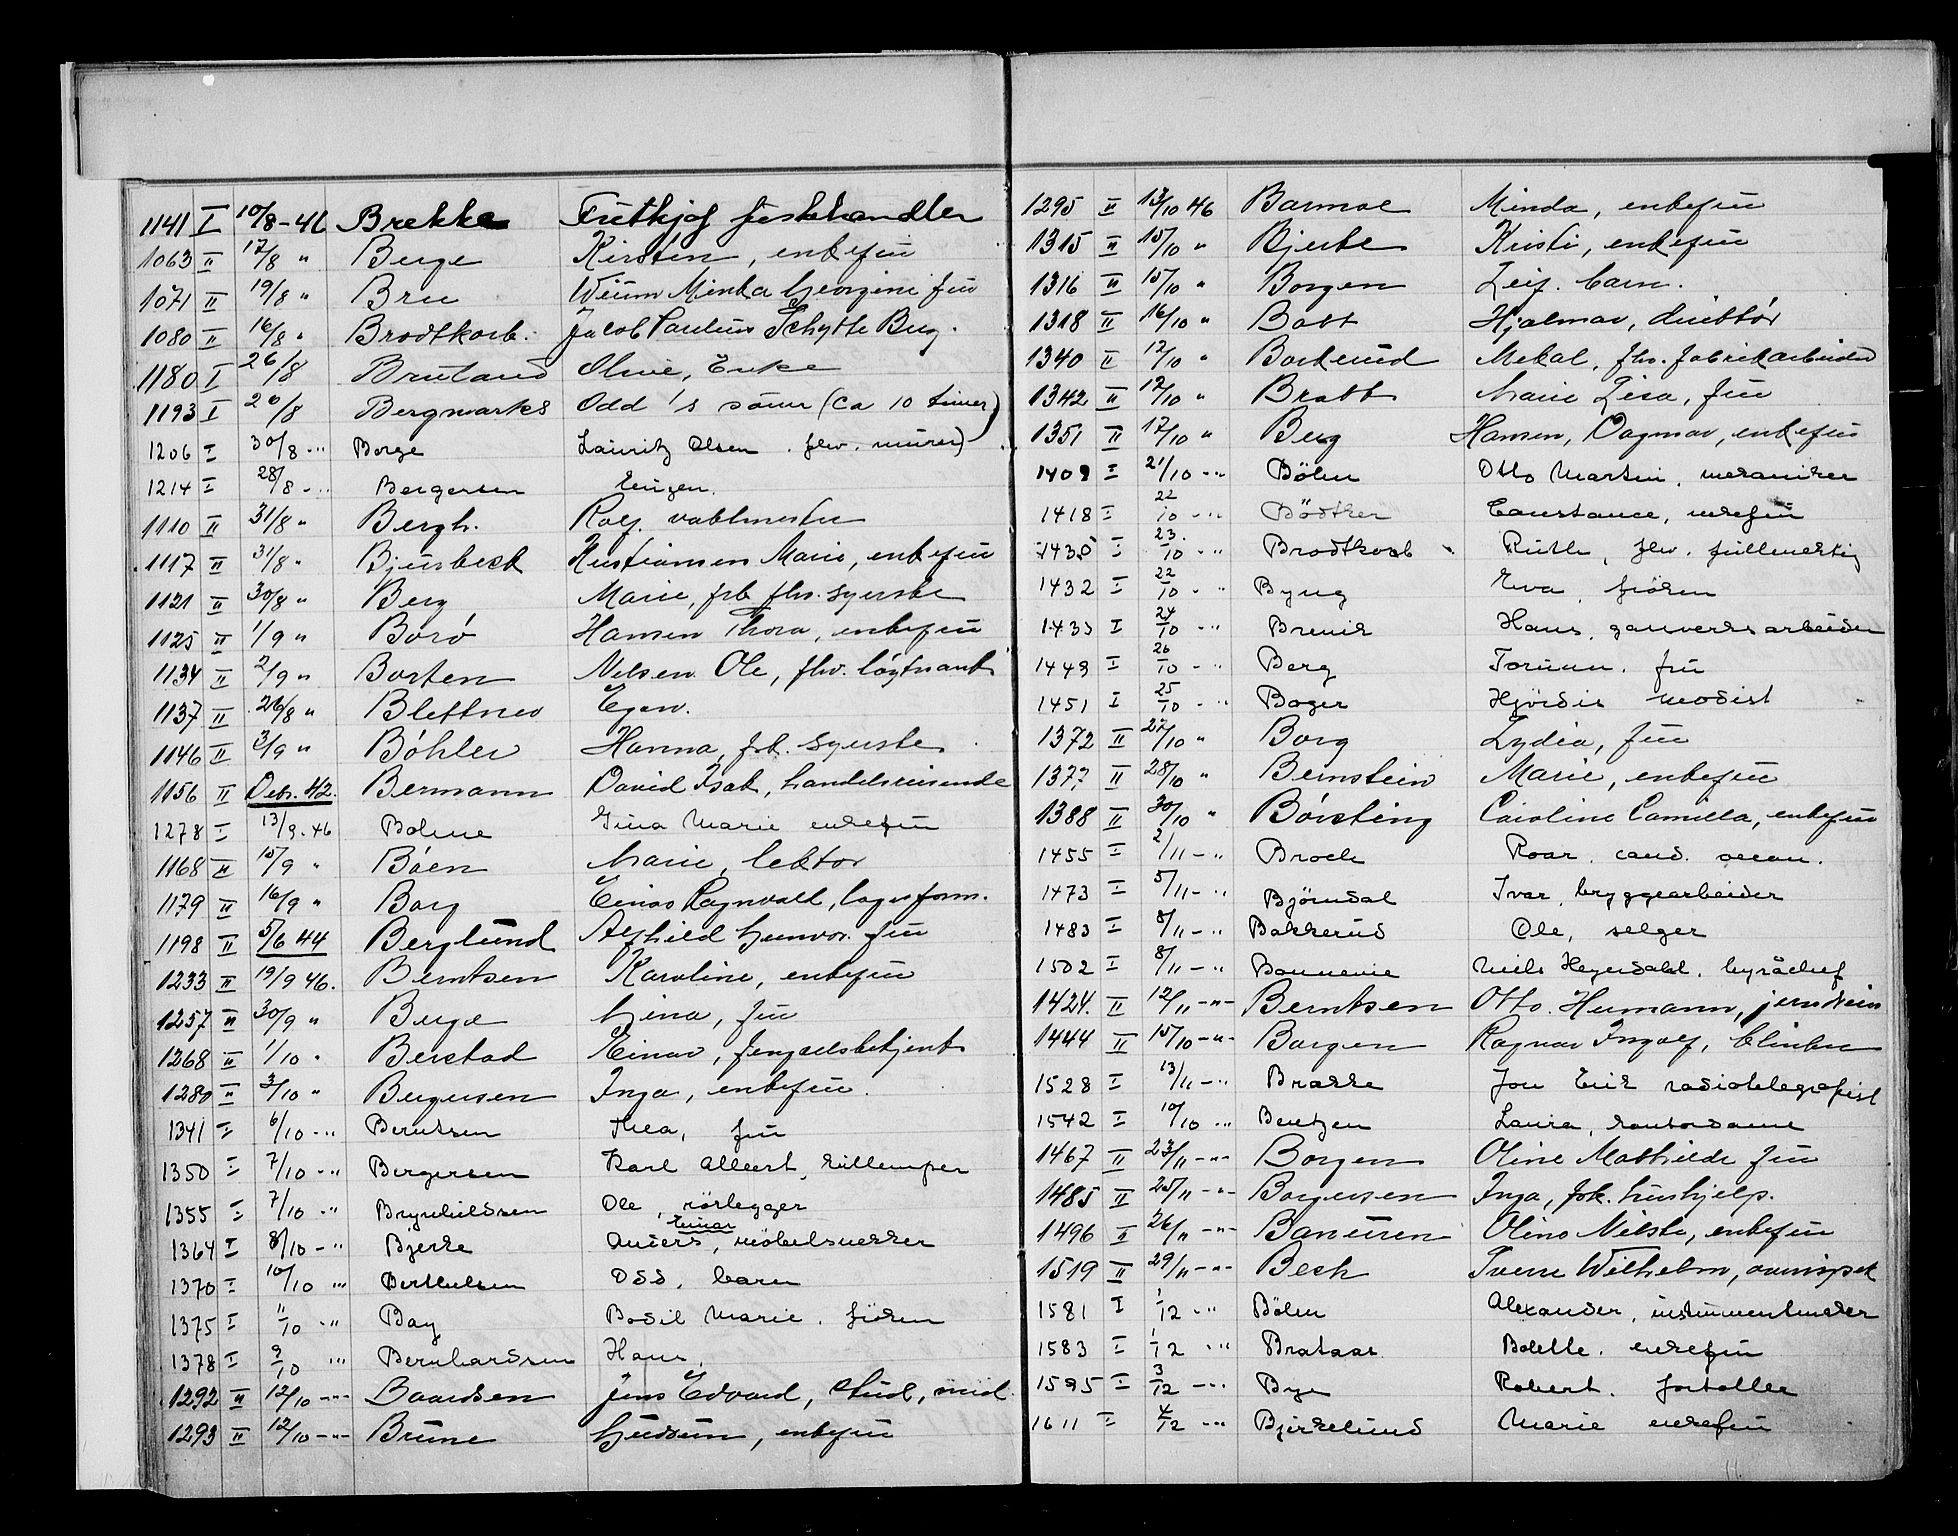 1141 I 10/8-46 Brekke Fritkjof fiskehandler
1063 II 17/8 " Berge Kirsten, enkefru
1071 II 19/8 " Bru Minka Georgine fru
1080 II 16/8 " Brodtkorb. Jacob Paulus Schytte Berg.
1180 I 26/8 Bruland Olive, Enke
1193 I 26/8 Bergmarks Odd 's sønn (ca 10 timer)
1206 I 30/8 -"- Borge Lauritz Olsen. fhv. murer
1214 I 28/8 -"- Bergersen Eugen.
1110 II 31/8 " Bergh. Rolf. vaktmester
1117 II 31/8 " Bjursbeck Kristiansen Marie, enkefru
1121 II 30/8 " Berg Marie, frk fhv. syerske
1125 II 1/9 " Borø Hansen Thora, enkefru
1134 II 2/9 " Borten Nelsen Ole, fhv. løytnant
1137 II 26/8 " Blettner Egen.
1146 II 3/9 " Bøhler Hanna, frk. syerske
1156 II Des. 42. Bermann David Isak, handelsreisende
1278 I 13/9-46 Bolme Gina Marie enkefru
1168 II 15/9 " Bøen Marie, lektor
1179 II 16/9 " Borg Einar Ragnvald, lagerform.
1198 II 5/6 44 Berglund Alfhild Gunvor. fru
1233 II 19/9 46. Berntsen Karoline, enkefru
1257 II 30/9 " Berge Lina, fru
1268 II 1/10 " Berstad Einar, fengselsbetjent
1280 II 3/10 " Bergersen Inga, enkefru.
1341 I 6/10 -"- Berntsen Thea, fru
1350 I 7/10 -"- Bergersen Karl Albert,
1355 I 7/10 -"- Brynhildsen Ole, rörlegger
1364 I 8/10 -"- Bjerke Anders Einar, møbelsnekker
1370 I 10/10 -"- Berthelsen Odd, barn
1375 I 11/10 -"- Bay Bodil Marie. fröken
1378 I 9/10 -"- Bernhardsen Hans.
1292 II 12/10 -"- Baardsen Jens Edvard, stud, med.
1293 II 12/10 -"- Brune Gudrun, enkefru
1295 II 13/10 46 Barmoe Minda, enkefru
1315 II 15/10 " Bjerke Kristi, enkefru
1316 II 15/10 " Borgen Leif. barn.
1318 II 16/10 " Bott Hjalmar, direktør
1340 II 12/10 " Borkerud Mekal, fhv. fabrikarbeider
1342 II 12/10 " Bratt Marie Lisa, fru
1351 II 17/10 " Berg Hansen, Dagmar, enkefru
1409 I 21/10 -"- Böhn Otto Martin, mekaniker
1418 I 22/10 -"- Bödtker Constance, enkefru
1430 I 23/10 -"- Brodtkorb Ruth, fhv. fullmektig
1432 I 22/10 -"- Byng Eva, fröken
1433 I 24/10 -"- Brevik Hans, gassverksarbeider
1449 I 26/10 -"- Berg Torunn. fru
1451 I 25/10 -"- Boger Hjördis modist
1372 II 27/10 " Borg Lydia, fru
1377 II 28/10 " Bernstein Marie, enkefru
1388 II 30/10 " Børsting Caroline Camilla, enkefru
1455 I 2/11 -"- Broch Roar, cand. oecon.
1473 I 5/11 -"- Björndal Ivar, bryggearbeider
1483 I 8/11 -"- Bakkerud Ole, selger
1502 I 8/11 -"- Bonnevie Niels Heyerdahl, byråchef
1424. II 12/11 -"- Berntsen Otto. Hermann, jerndreier
1444 II 15/10 -"- Borgen Ragnar Ingolf,
1528 I 13/11 -"- Brakke Jon Erik radiotelegrafist
1542 I 10/10 -"- Bentzen Laura, kontordame
1467 II 23/11 -"- Borgen Oline Mathilde fru
1485 II 25/11 -"- Borgersen Inga, frk. hushjelp.
1496 II 26/11 -"- Banuren Oline Nilste, enkefru
1519 II 29/11 -"- Bech Wilhelm, overinspek
1581 I 1/12 -"- Böhn Alexander, instrumentmaker
1583 I 1/12 -"- Brataas Bolette. enkefru
1595 I 3/12 -"- Bye Robert. fortoller
1611 I 4/12 -"- Bjerkelund Marie enkefru